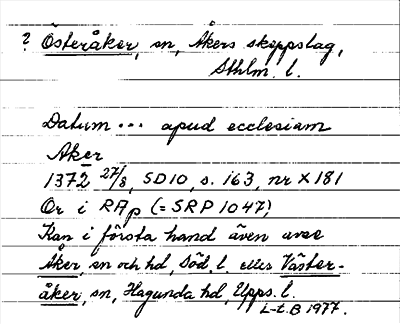 ? Österåker, sn, Åkers skeppslag,
Sthlm. l.
Datum ... apud ecclesiam
Aker
1372 27/8, SD10, s. 163, nr X181
Or i RAp (= SRP 1047)
Kan i första hand även avse
Åker, sn och hd, Söd. l. eller Väster-
åker, sn, Hagunda hd, Upps. l.
L-t. B 1977.